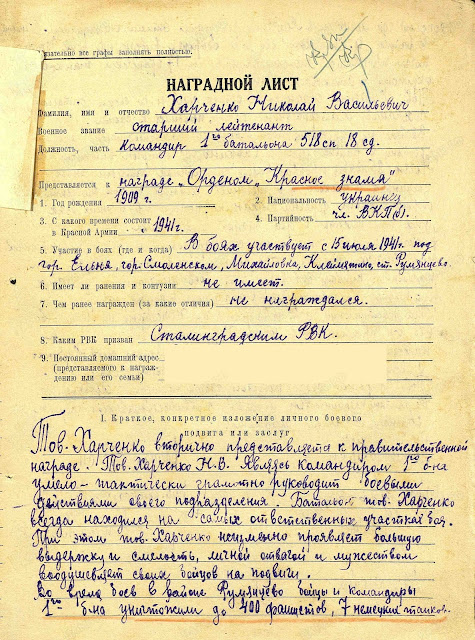 зательно все графы заполнять полностью.
НАГРАДНОЙ ЛИСТ
Фамилия, имя и отчество Харченко Николай Васильевич
Военное звание старший лейтенант
Должность, часть Командир 1го батальона 518 сп 18 сд.
Представляется к награде „Орденом „Красное знамя"
1. Год рождения 1909 г. 2. Национальность украинец
3. С какого времени состоит в Красной Армии с 1941г. 4. Партийность чл. ВКП(б).
5. Участие в боях (где и когда) В боях участвует с 15 июля 1941г. под
гор. Ельня, гор. Смоленском, Михайловка, Клемятино, ст. Румянцево.
6. Имеет ли ранения и контузии не имеет.
7. Чем ранее награжден (за какие отличия) не награждался.
8. Каким РВК призван Сталинградским РВК.
9. Постоянный домашний адрес
(представляемого к награждению или его семьи)
I. Краткое, конкретное изложение личного боевого
подвига или заслуг
Тов. Харченко вторично представляется к правительственной
награде. Тов. Харченко Н.В. Являясь командиром 1го б-на
умело – тактически грамотно руководит боевыми
действиями своего подразделения Батальон тов. Харченко
всегда находился на самых ответственных участках боя.
При этом тов. Харченко неизменно проявляет большую
выдержку и смелость, личной отвагой и мужеством
воодушевляет своих бойцов на подвиги.
Во время боев в районе Румянцево бойцы и командиры
1го б-на уничтожили до 400 фашистов, 7 немецких танков.